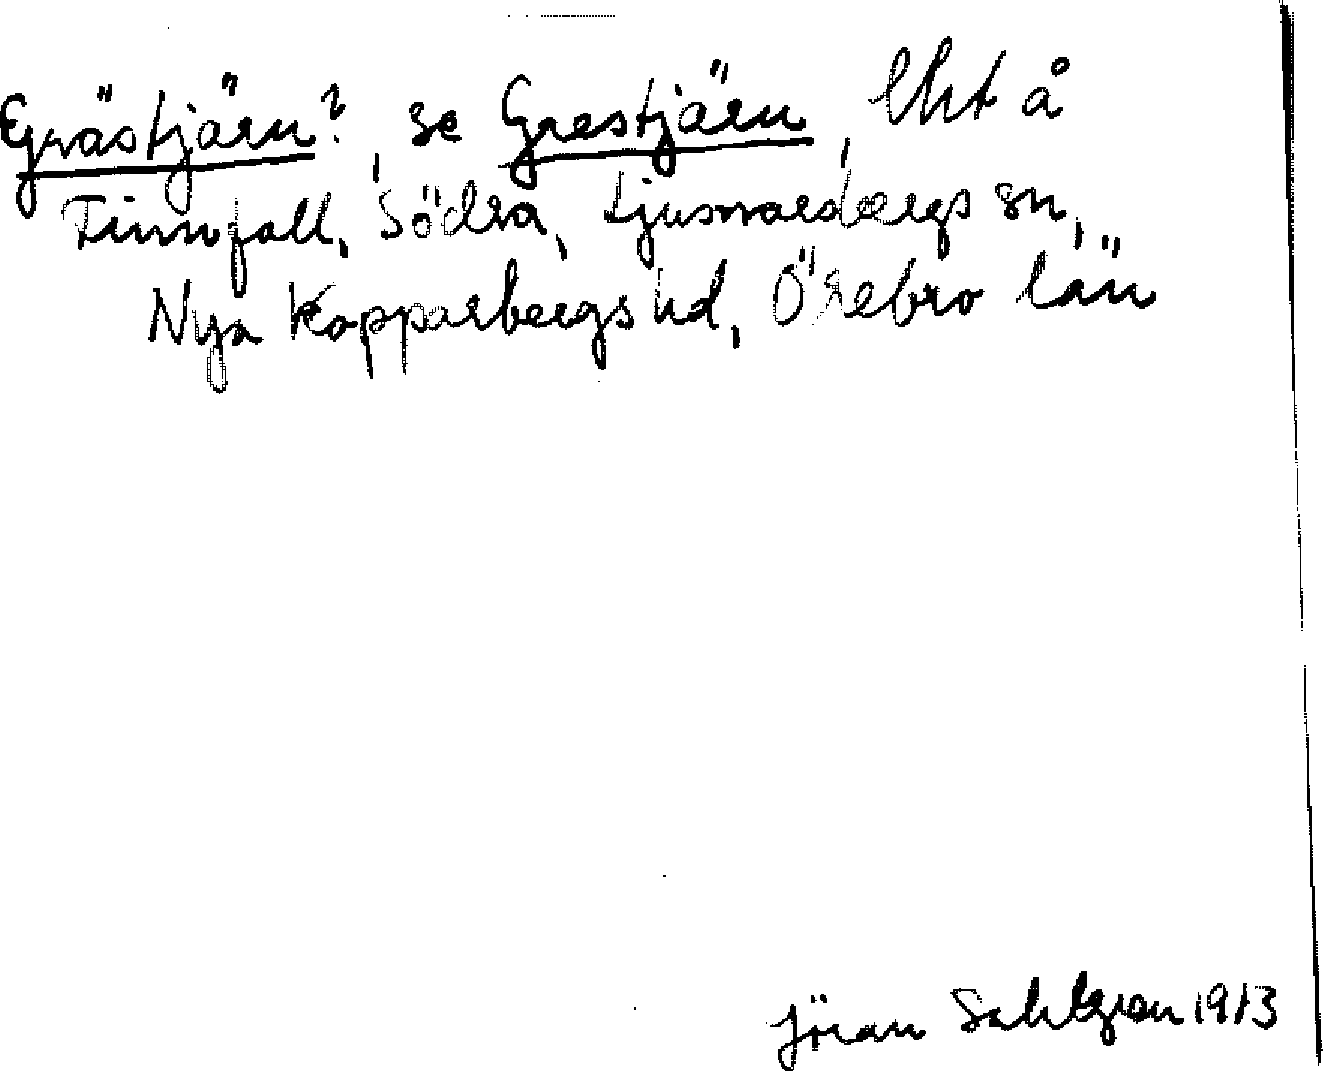 Grästjärn?, se Grestjärn, Uht å
Finnfall, Södra, Ljusnarsbergs sn,
Nya Kopparbergs hd, Örebro län
Jöran Sahlgren 1913